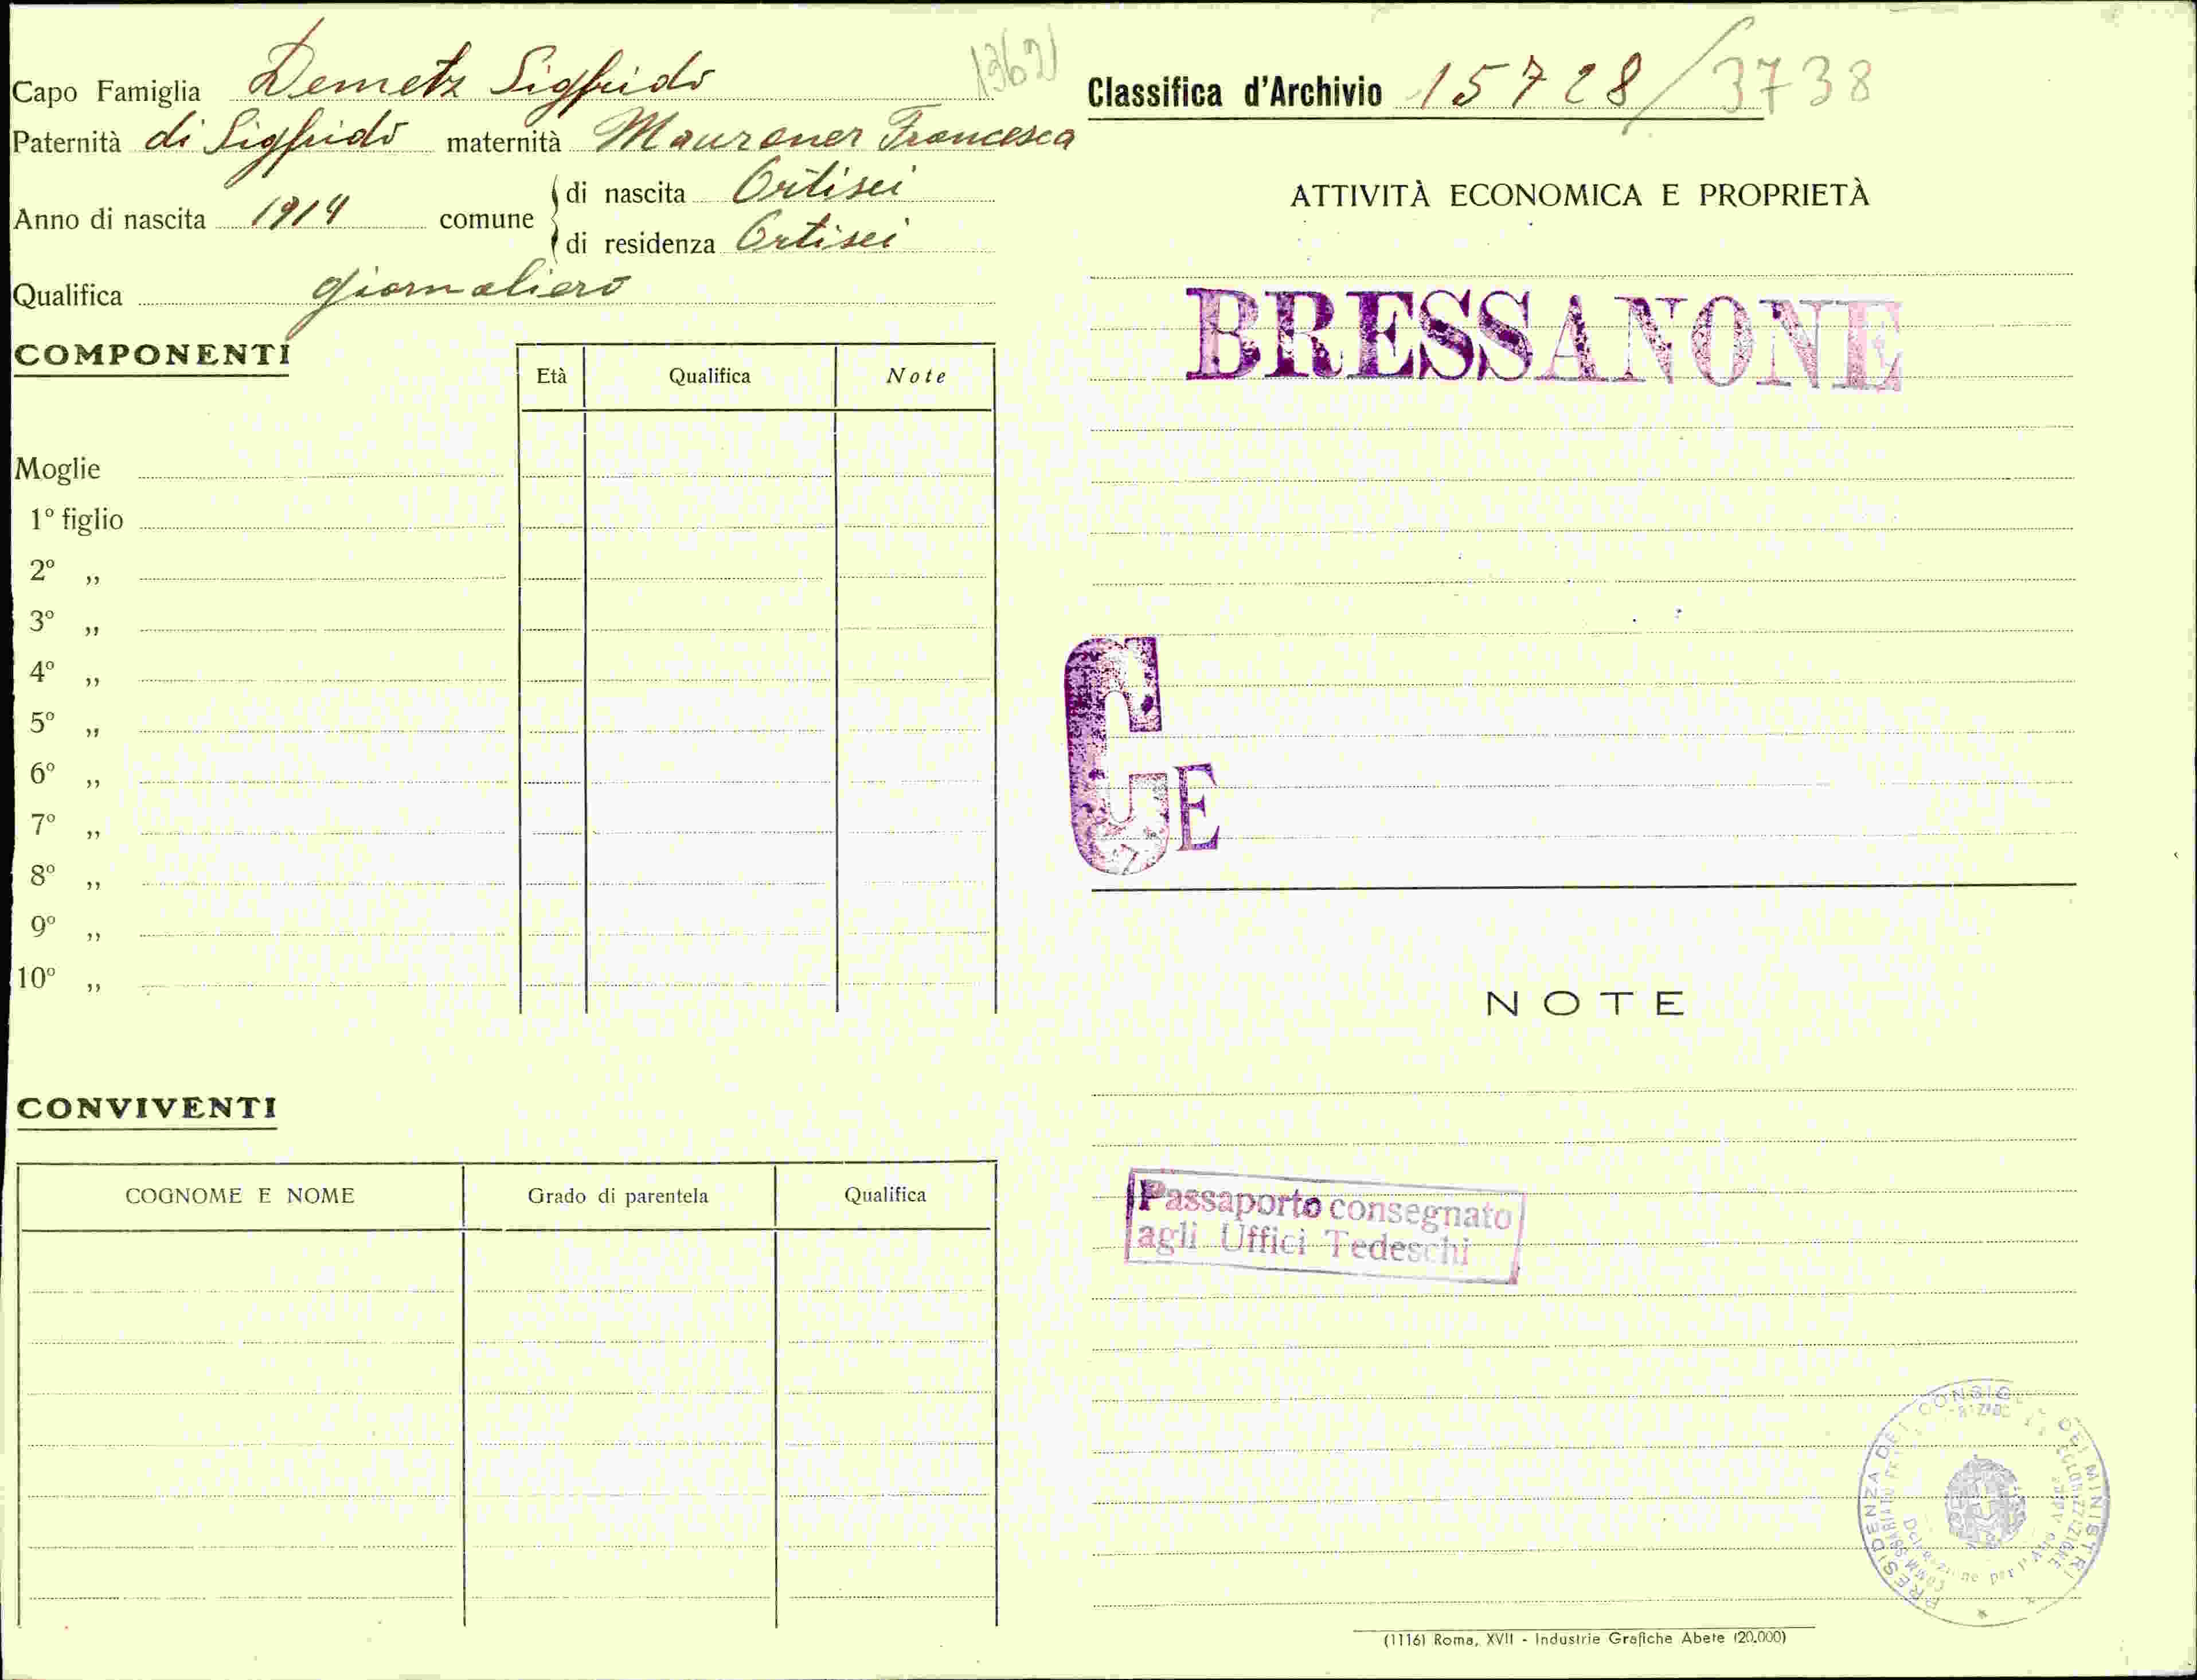 Capo Famiglia Demetz Sigfrido
Paternità di Sigfrido maternità Maurener Francesca
Anno di nascita 1914 comune di nascita Ortisei
di residenza Ortisei
Qualifica giornaliero
COMPONENTI
Età Qualifica Note
Moglie
1º figlio
2º „
3º „
4º „
5º „
6º „
7º „
8º „
9º „
10º „
CONVIVENTI
COGNOME E NOME Grado di parentela Qualifica
Classifica d'Archivio 15728/3738
ATTIVITÀ ECONOMICA E PROPRIETÀ
BRESSANONE
GE
NOTE
Passaporto consegnato
agli Uffici Tedeschi
PRESIDENZA DEL CONSIGLIO DEI MINISTRI
(1116) Roma, XVII - Industrie Grafiche Abete (20.000)